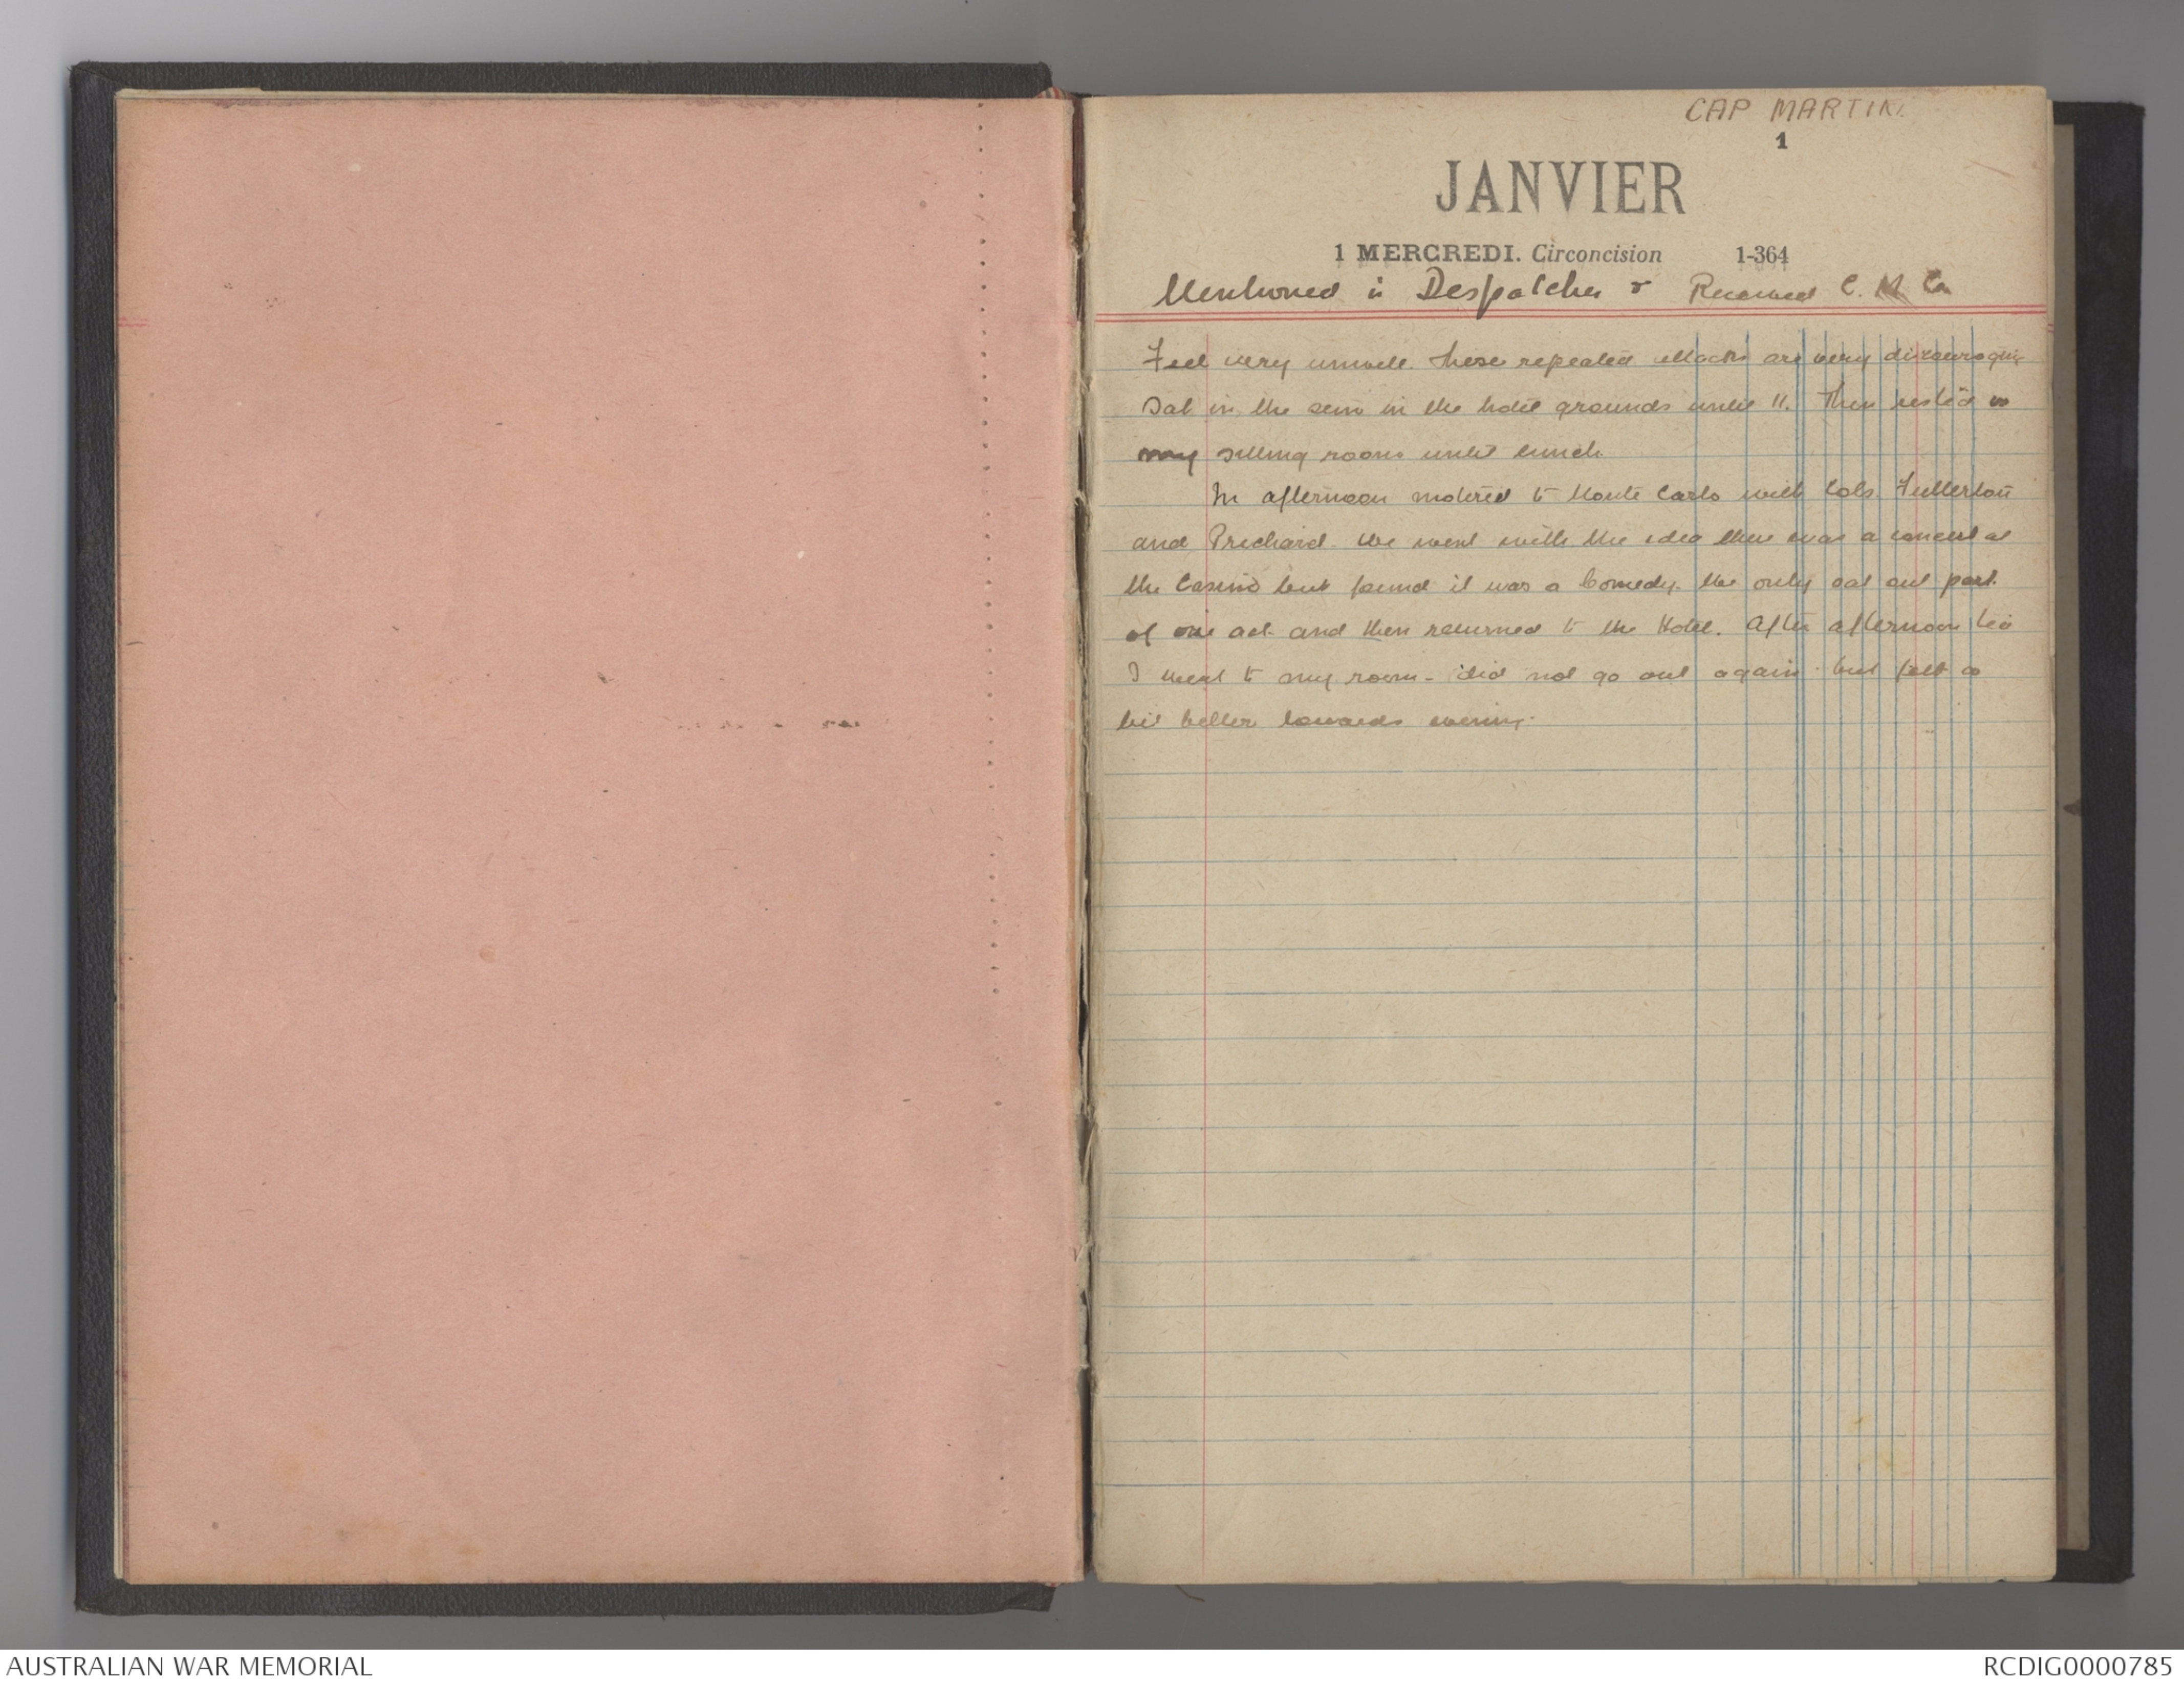 CAP MARTIN.
1
JANVIER
1 MERCREDI. Circoncision 1-364
Mentioned in Despatches & Received C. M. G.
Feel very unwell. These repeated attacks are very discouraging
Sat in the sun in the hotel grounds until 11. Then rested in
my sitting room until lunch.
In afternoon motored to Monte Carlo with Cols. Fullerton
and Prichard. We went with the idea there was a concert at
the Casino but found it was a Comedy. We only sat out part
of one act and then returned to the Hotel. After afternoon tea
I went to my room - did not go out again but felt a
bit better towards evening.
AUSTRALIAN WAR MEMORIAL
RCDIG0000785